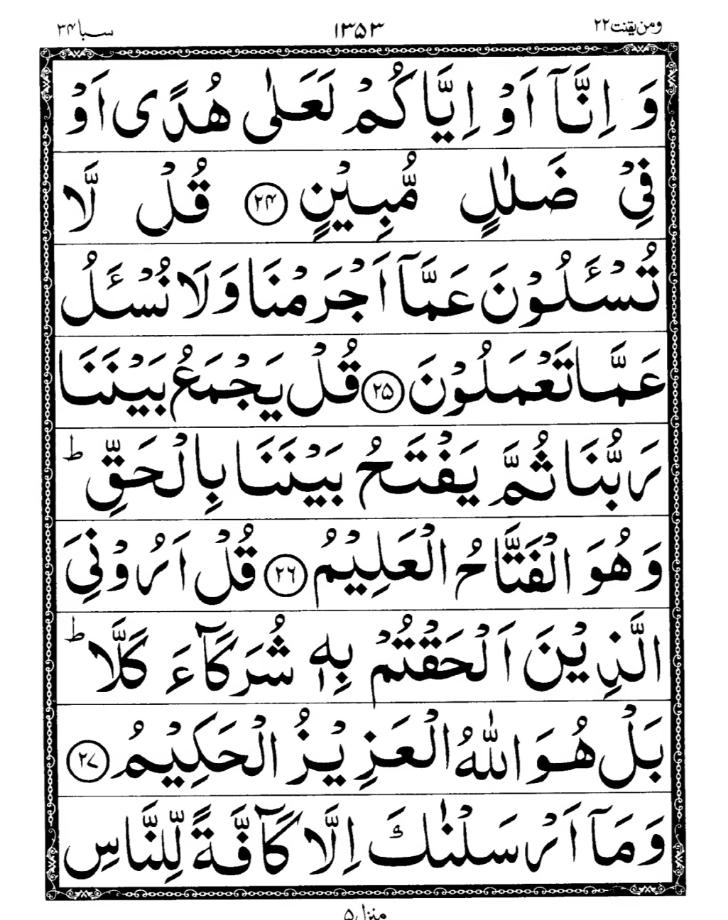 ومن یقنت ۲۲ ۱۳۵۳ سبا ۳۴
وَ اِنَّاۤ اَوْ اِیَّاكُمْ لَعَلٰى هُدًى اَوْ
فِیْ ضَلٰلٍ مُّبِیْنٍ ﴿۲۴﴾ قُلْ لَّا
تُسْـَٔلُوْنَ عَمَّاۤ اَجْرَمْنَا وَلَا نُسْـَٔلُ
عَمَّا تَعْمَلُوْنَ ﴿۲۵﴾ قُلْ یَجْمَعُ بَیْنَنَا
رَبُّنَا ثُمَّ یَفْتَحُ بَیْنَنَا بِالْحَقِّ ؕ
وَهُوَ الْفَتَّاحُ الْعَلِیْمُ ﴿۲۶﴾ قُلْ اَرُوْنِیَ
الَّذِیْنَ اَلْحَقْتُمْ بِهٖ شُرَكَآءَ كَلَّا ؕ
بَلْ هُوَ اللّٰهُ الْعَزِیْزُ الْحَكِیْمُ ﴿۲۷﴾
وَمَاۤ اَرْسَلْنٰكَ اِلَّا كَآفَّةً لِّلنَّاسِ
منزل ۵